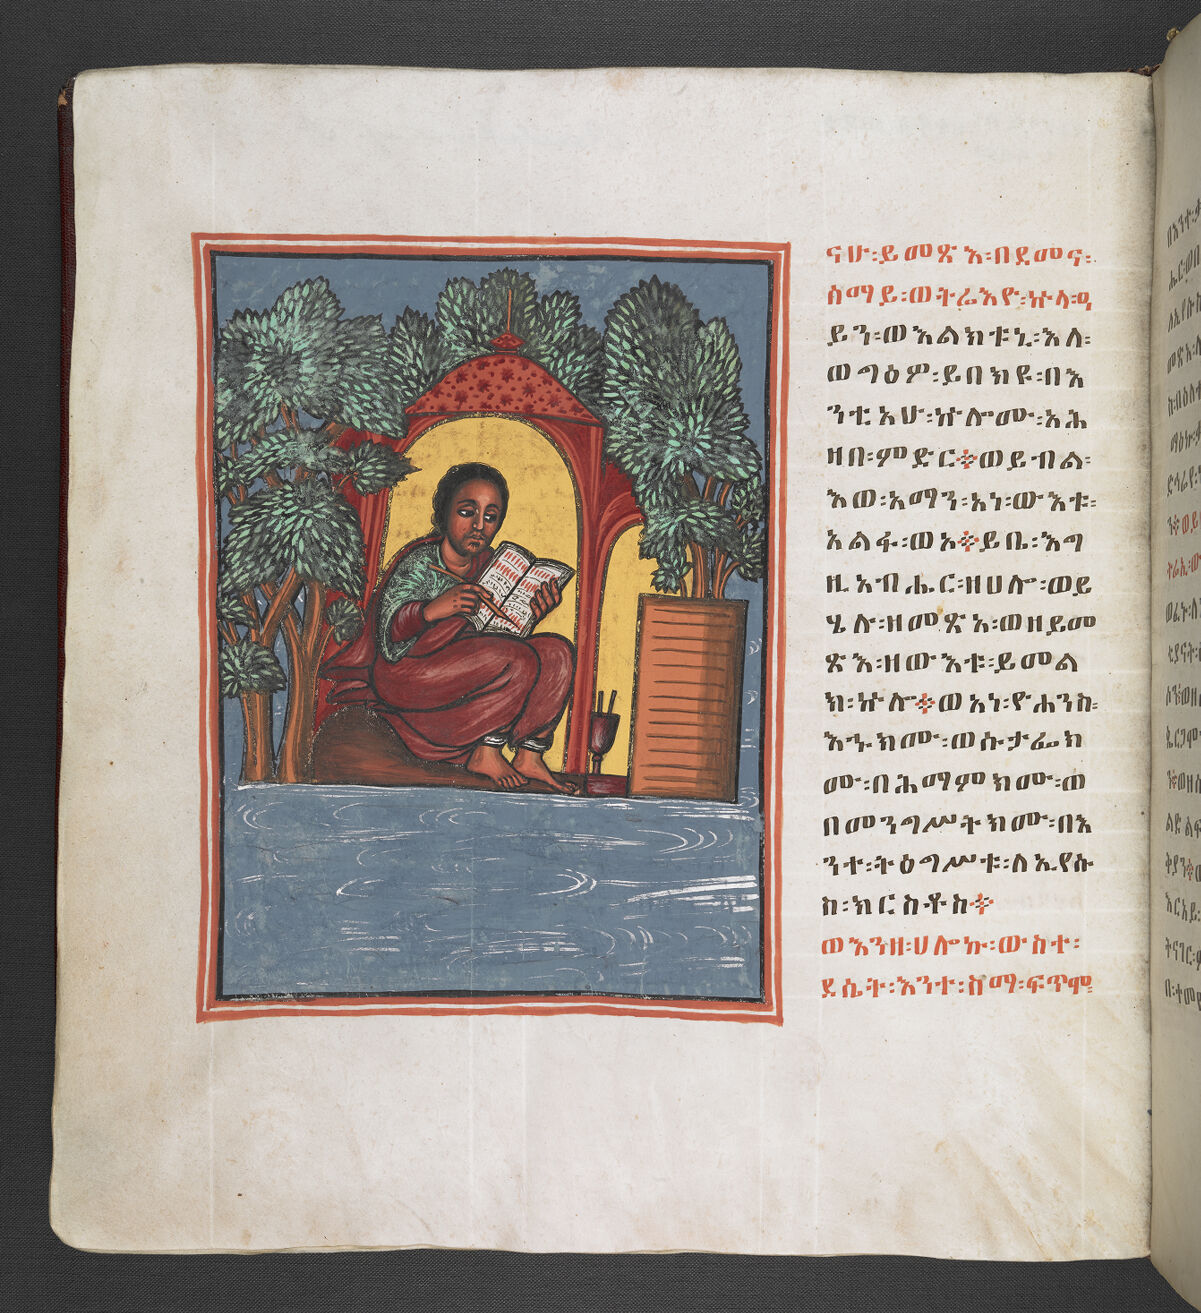 ናሁ፡ይመጽእ፡በደመና፡
ሰማይ፡ወትሬእዮ፡ኵላ፡ዓ
ይን፡ወእልክቱኒ፡እለ፡
ወግዕዎ፡ይበክዩ፡በእ
ንቲአሁ፡ኵሎሙ፡አሕ
ዘበ፡ምድር፨ወይብል፡
እወ፡አማን፡አነ፡ውእቱ፡
አልፋ፡ወአ፨ይቤ፡እግ
ዚአብሔር፡ዘሀሎ፡ወይ
ሄሉ፡ዘመጽአ፡ወዘይመ
ጽእ፡ዘውእቱ፡ይመል
ክ፡ኵሎ፨ወአነ፡ዮሐንስ፡
እኁክሙ፡ወሱታፌክ
ሙ፡በሕማምክሙ፡ወ
በመንግሥትክሙ፡በእ
ንተ፡ትዕግሥቱ፡ለኢየሱ
ስ፡ክርስቶስ፨
ወእንዘ፡ሀሎኩ፡ውስተ፡
ደሴት፡እንተ፡ስማ፡ፍጥሞ፡